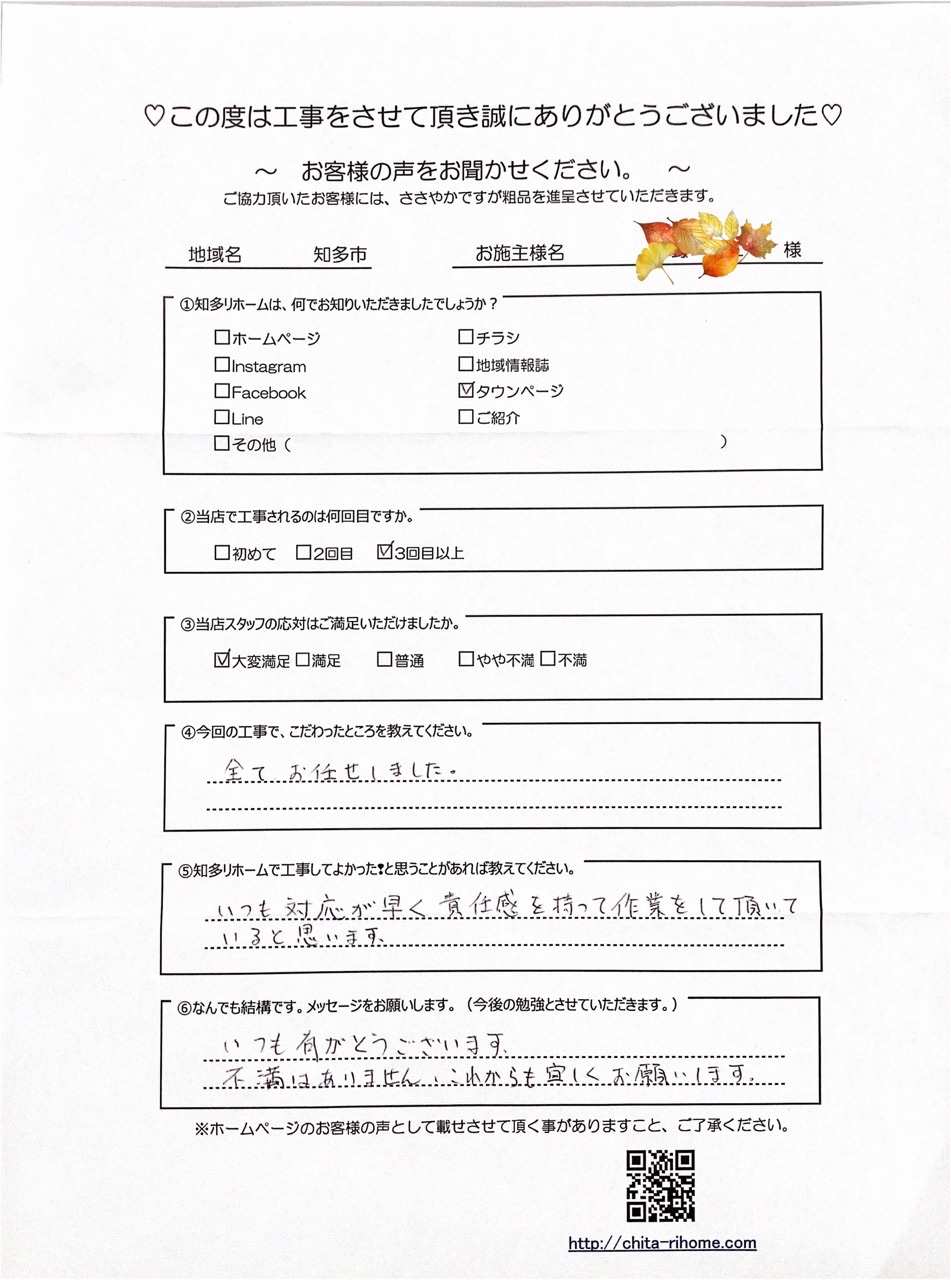 ♡この度は工事をさせて頂き誠にありがとうございました♡
～ お客様の声をお聞かせください。 ～
ご協力頂いたお客様には、ささやかですが粗品を進呈させていただきます。
地域名 知多市 お施主様名 様
①知多リホームは、何でお知りいただきましたでしょうか？
□ホームページ □チラシ
□Instagram □地域情報誌
□Facebook ☑タウンページ
□Line □ご紹介
□その他（ ）
②当店で工事されるのは何回目ですか。
□初めて □2回目 ☑3回目以上
③当店スタッフの応対はご満足いただけましたか。
☑大変満足 □満足 □普通 □やや不満 □不満
④今回の工事で、こだわったところを教えてください。
全て お任せしました。
⑤知多リホームで工事してよかった❢と思うことがあれば教えてください。
いつも 対応が早く 責任感を持って作業をして頂いて
いると思います。
⑥なんでも結構です。メッセージをお願いします。（今後の勉強とさせていただきます。）
いつも有がとうございます。
不満はありません、これからも宜しくお願いします。
※ホームページのお客様の声として載せさせて頂く事がありますこと、ご了承ください。
http://chita-rihome.com